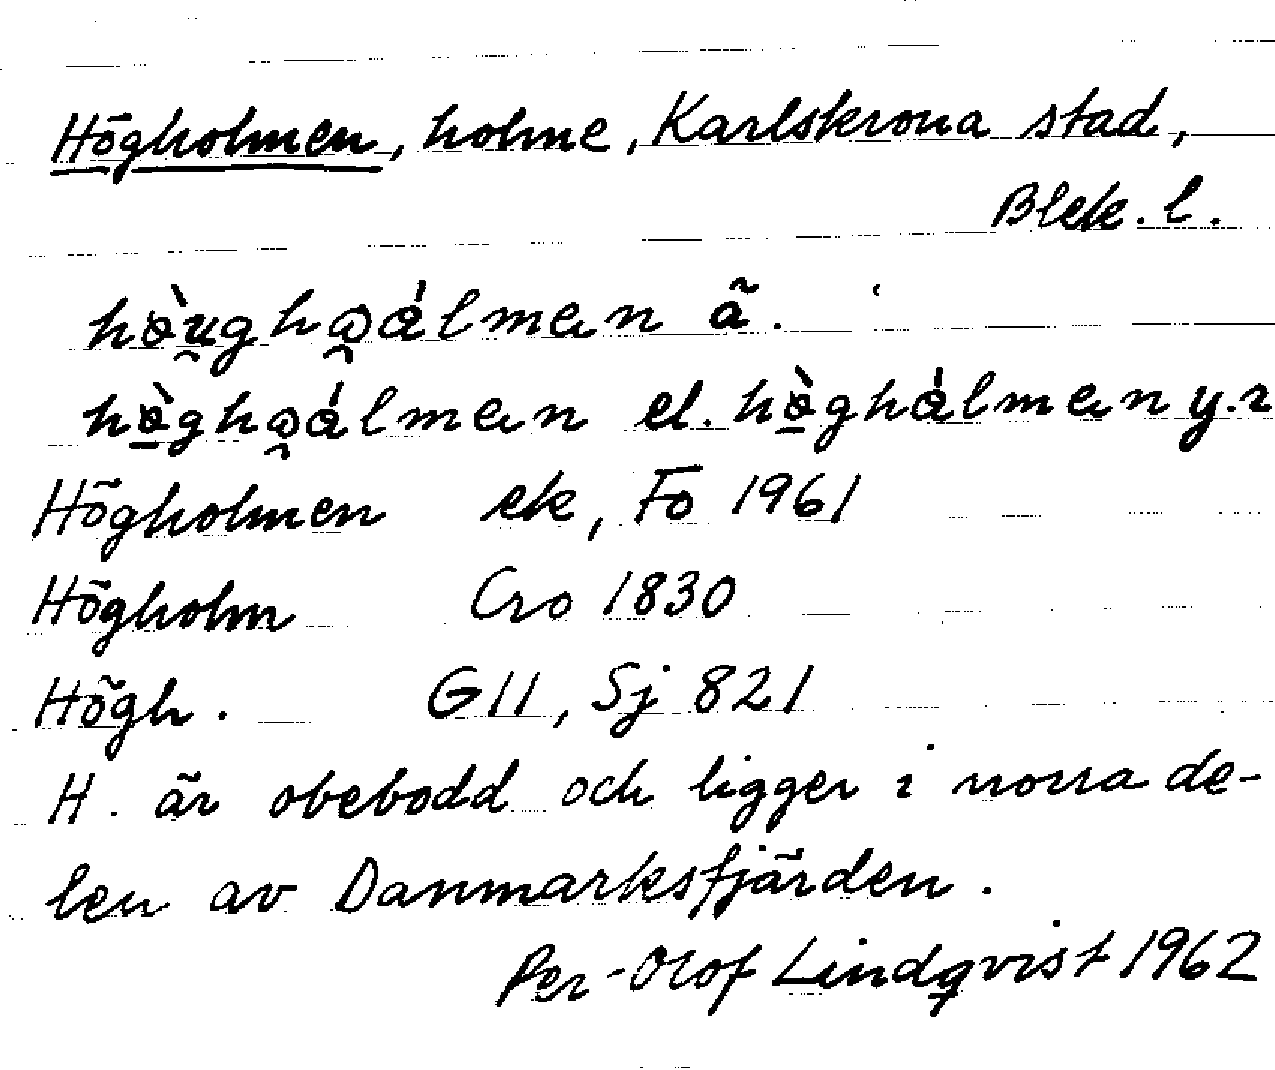 Högholmen, holme, Karlskrona stad,
Blek. l.
ä.
el. y.r
Högholmen ek, Fo 1961
Högholm Cro 1830
Högh. GII, Sj 821
H. är obebodd och ligger i norra de-
len av Danmarksfjärden.
Per-Olof Lindqvist 1962